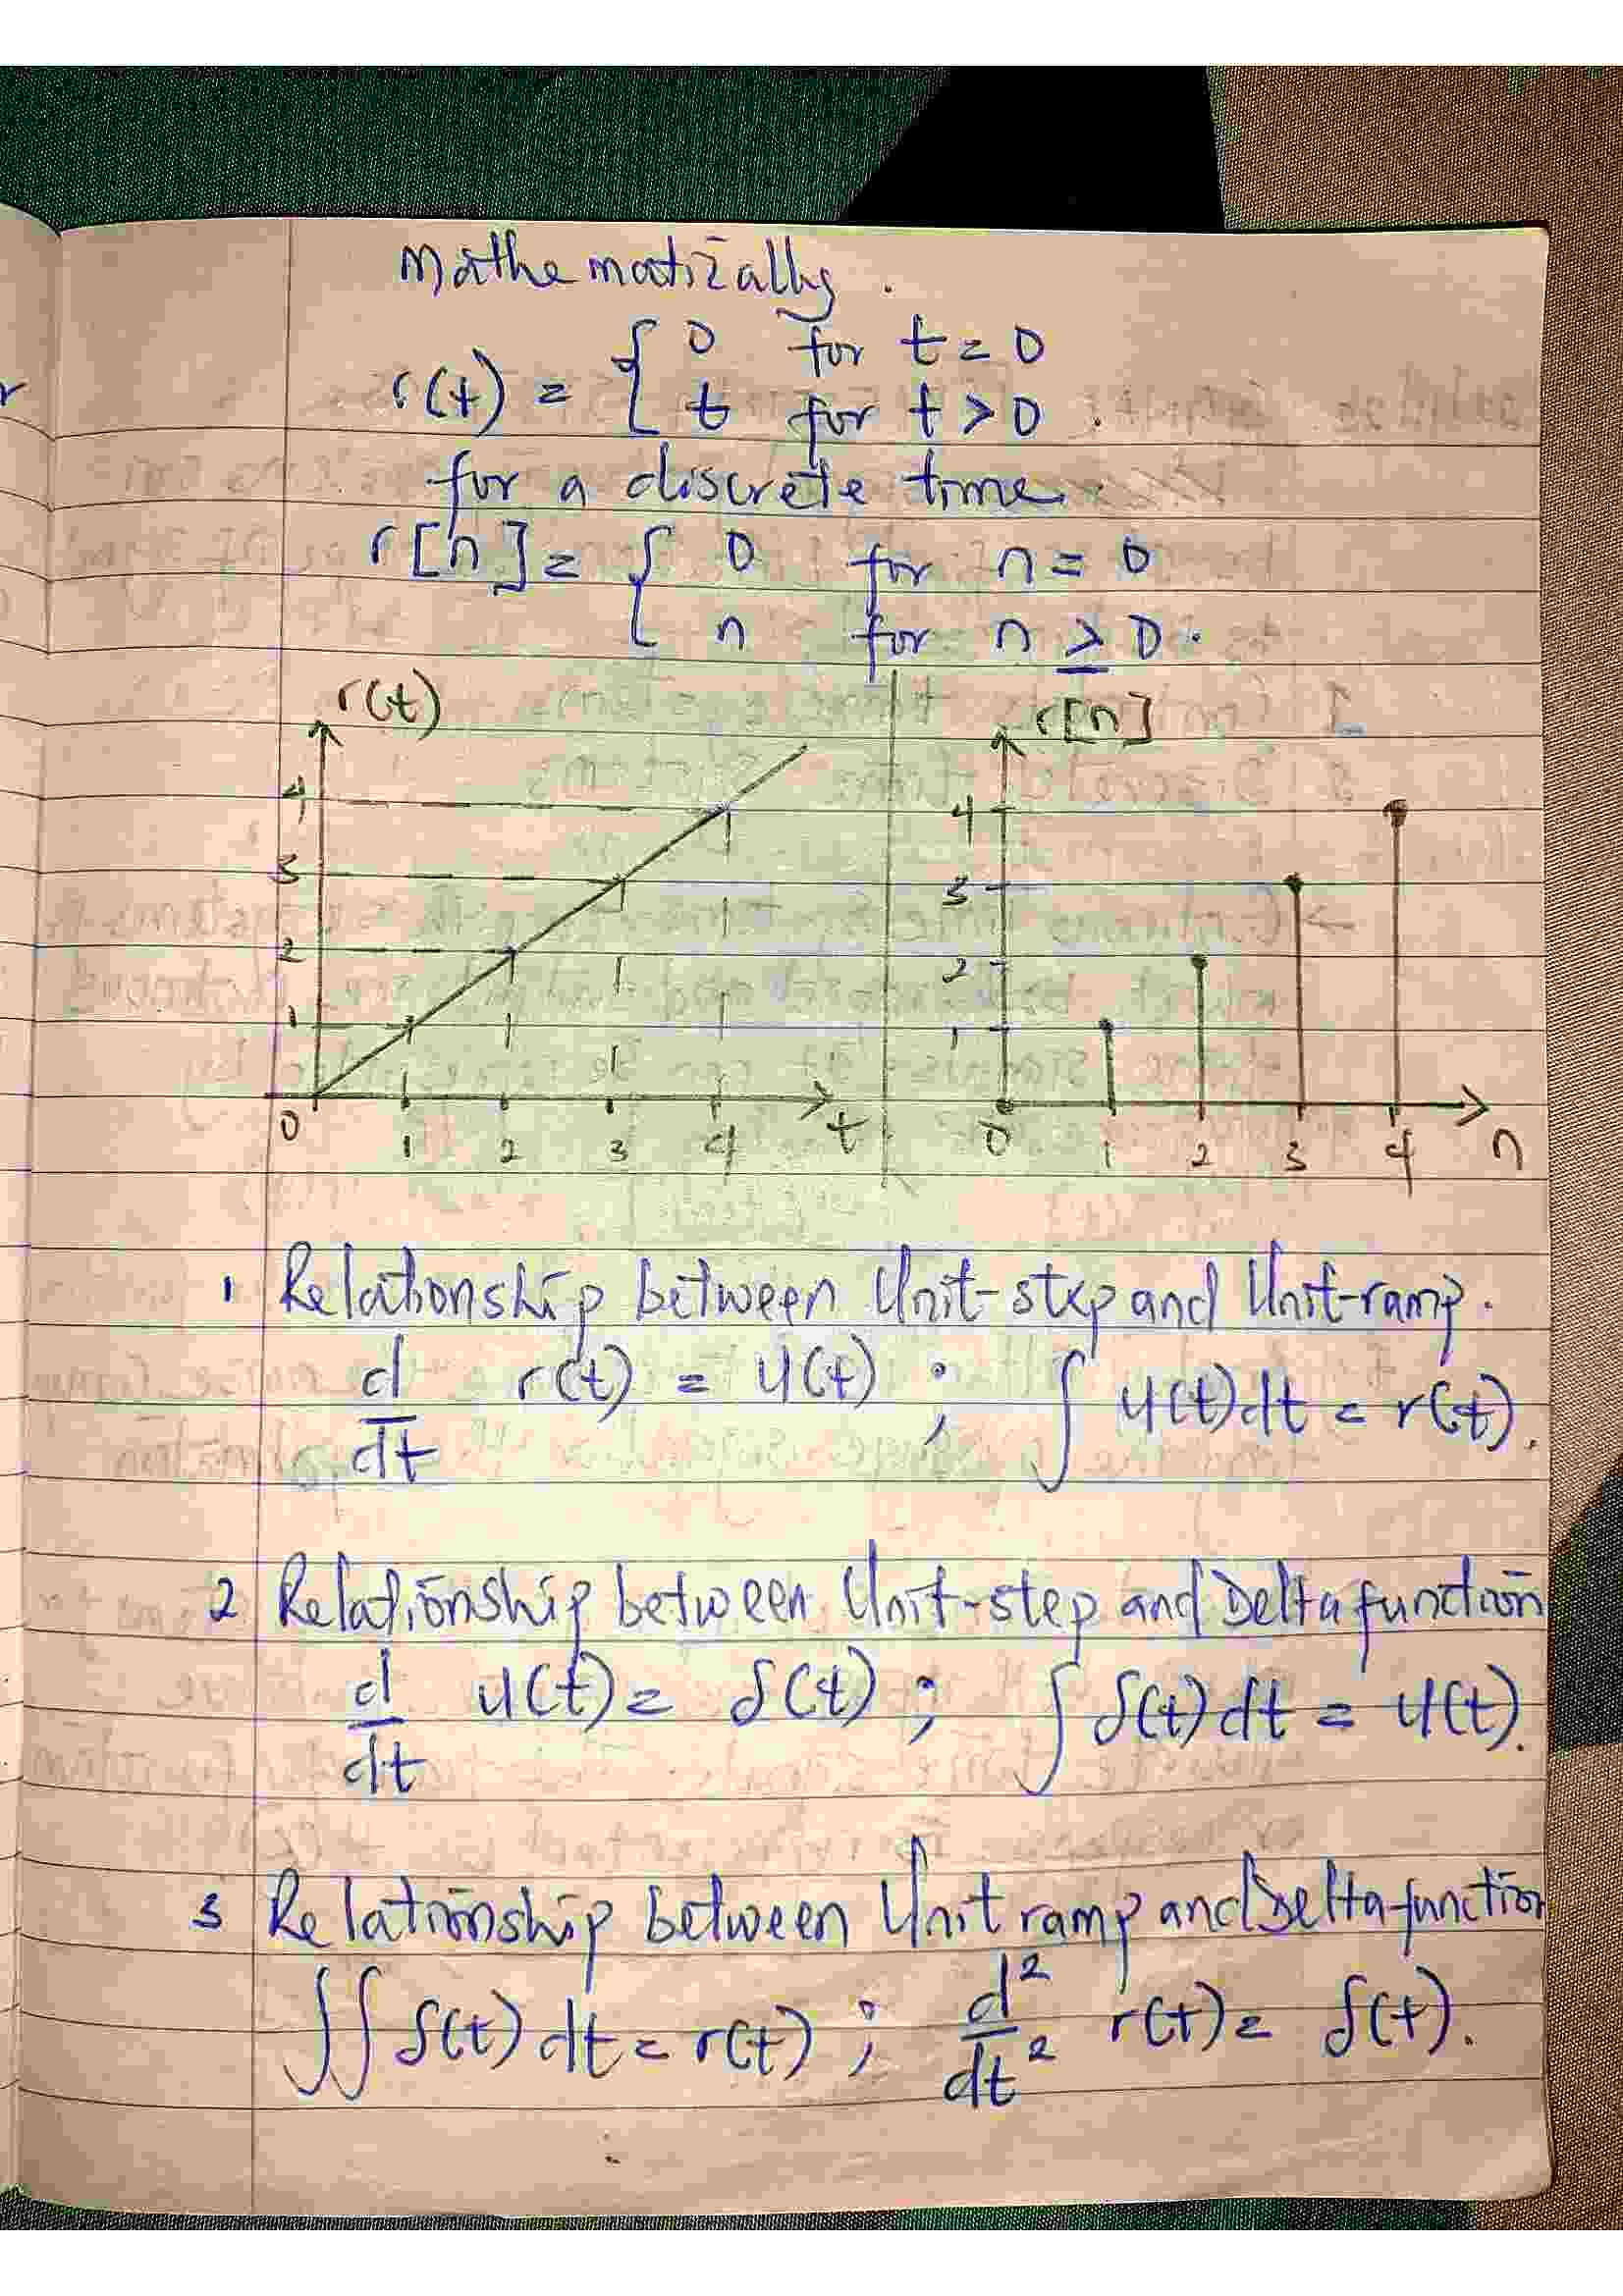 Mathematically.
r(t) = { 0 for t = 0
t for t > 0.
for a discrete time
r[n] = { 0 for n = 0
n for n ≥ 0.
r(t)
4
3
2
1
0 1 2 3 4 t
r[n]
4
3
2
1
0 1 2 3 4 n
1 Relationship between Unit-step and Unit-ramp.
d/dt r(t) = u(t) ; ∫ u(t)dt = r(t).
2 Relationship between Unit-step and Delta function
d/dt u(t) = δ(t) ; ∫ δ(t) dt = u(t).
3 Relationship between Unit ramp and Delta-function
∫∫ δ(t) dt = r(t) ; d²/dt² r(t) = δ(t).